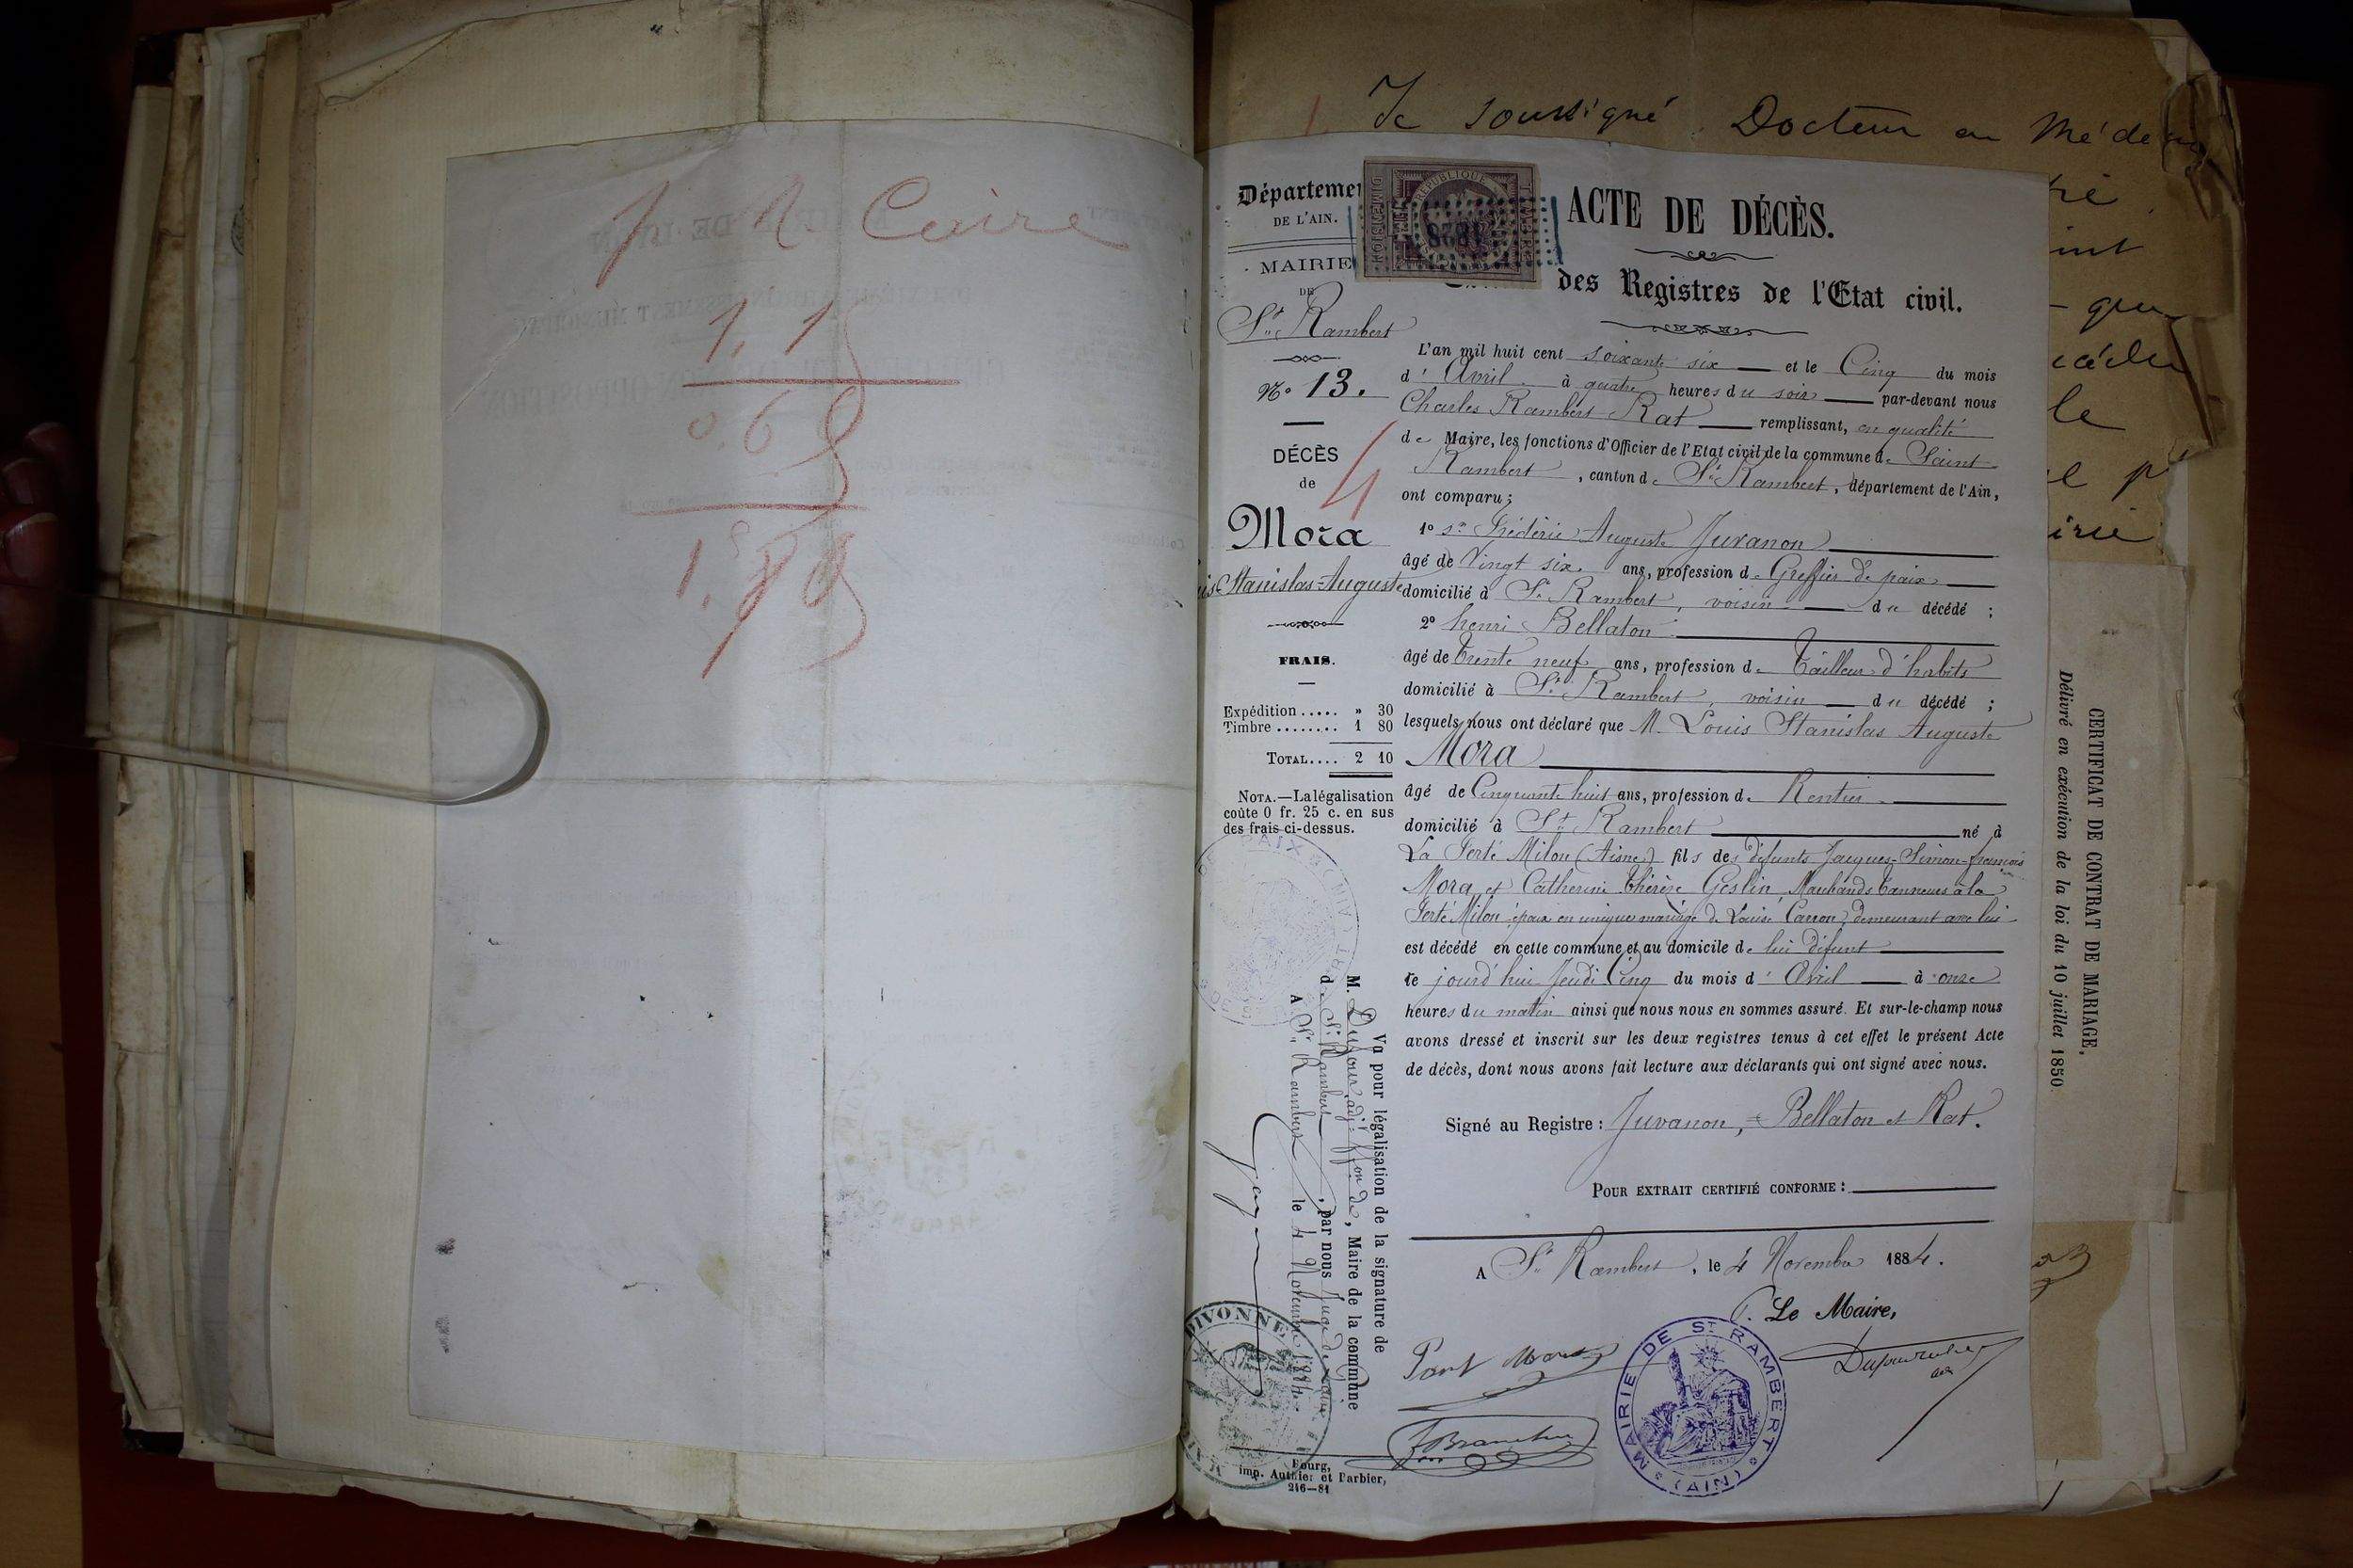 J M Caire
1.15
0.65
1.80
Je soussigné Docteur en Méde
Départeme
DE L'AIN.
MAIRIE
DE
St Rambert
No 13.
DÉCÈS
de
4
Mora
Stanislas-Auguste
FRAIS.
Expédition..... » 30
Timbre........ 1 80
TOTAL.... 2 10
NOTA.—La légalisation
coûte 0 fr. 25 c. en sus
des frais ci-dessus.
RÉPUBLIQUE
DIMENSION
ACTE DE DÉCÈS.
des Registres de l'Etat civil.
L'an mil huit cent soixante six et le Cinq du mois
d' Avril à quatre heures du soir par-devant nous
Charles Rambert Rat remplissant, en qualité
de Maire, les fonctions d'Officier de l'Etat civil de la commune de Saint
Rambert, canton de St Rambert, département de l'Ain,
ont comparu ;
1o sr Frédéric Auguste Juvanon
âgé de Vingt six ans, profession de Greffier de paix
domicilié à St Rambert, voisin du décédé ;
2o henri Bellaton
âgé de trente neuf ans, profession de Tailleur d'habits
domicilié à St Rambert, voisin du décédé ;
lesquels nous ont déclaré que M. Louis Stanislas Auguste
Mora
âgé de Cinquante huit ans, profession de Rentier
domicilié à St Rambert né à
La Ferté Milon (Aisne) fils des défunts Jacques-Simon-françois
Mora et Catherine Thérèse Geslin Marchands tanneurs à la
Ferté Milon époux en unique mariage de Louise Carron, demeurant avec lui
est décédé en cette commune et au domicile de lui défunt
ce jourd'hui Jeudi Cinq du mois d' Avril à onze
heures du matin ainsi que nous nous en sommes assuré. Et sur-le-champ nous
avons dressé et inscrit sur les deux registres tenus à cet effet le présent Acte
de décès, dont nous avons fait lecture aux déclarants qui ont signé avec nous.
Signé au Registre : Juvanon, Bellaton et Rat.
POUR EXTRAIT CERTIFIÉ CONFORME :
A St Rambert, le 4 Novembre 1884.
Le Maire,
MAIRIE DE ST RAMBERT
(AIN)
Vu pour légalisation de la signature de
M. Dufour, adjt ffon de, Maire de la commune
de St Rambert, par nous Juge de paix
A St Rambert le 4 Novembre 1884.
DIVONNE
Bourg,
imp. Authier et Barbier,
246—81
CERTIFICAT DE CONTRAT DE MARIAGE,
Délivré en exécution de la loi du 10 juillet 1850.